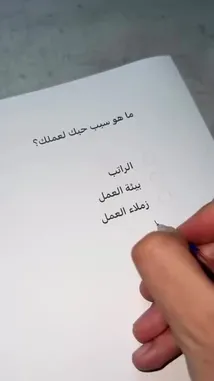 ما هو سبب حبك لعملك؟
الراتب
بيئة العمل
زملاء العمل